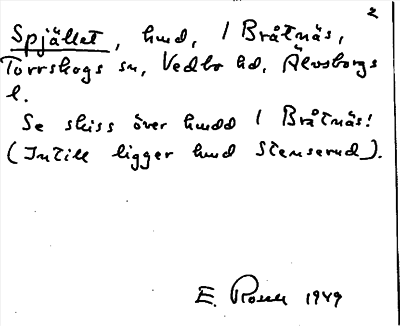 2
Spjället, hmd, 1 Bråtnäs,
Torrskogs sn, Vedbo hd, Älvsborgs
l.
Se skiss över hmdd 1 Bråtnäs!
(Intill ligger hmd Stenserud).
E. 1949